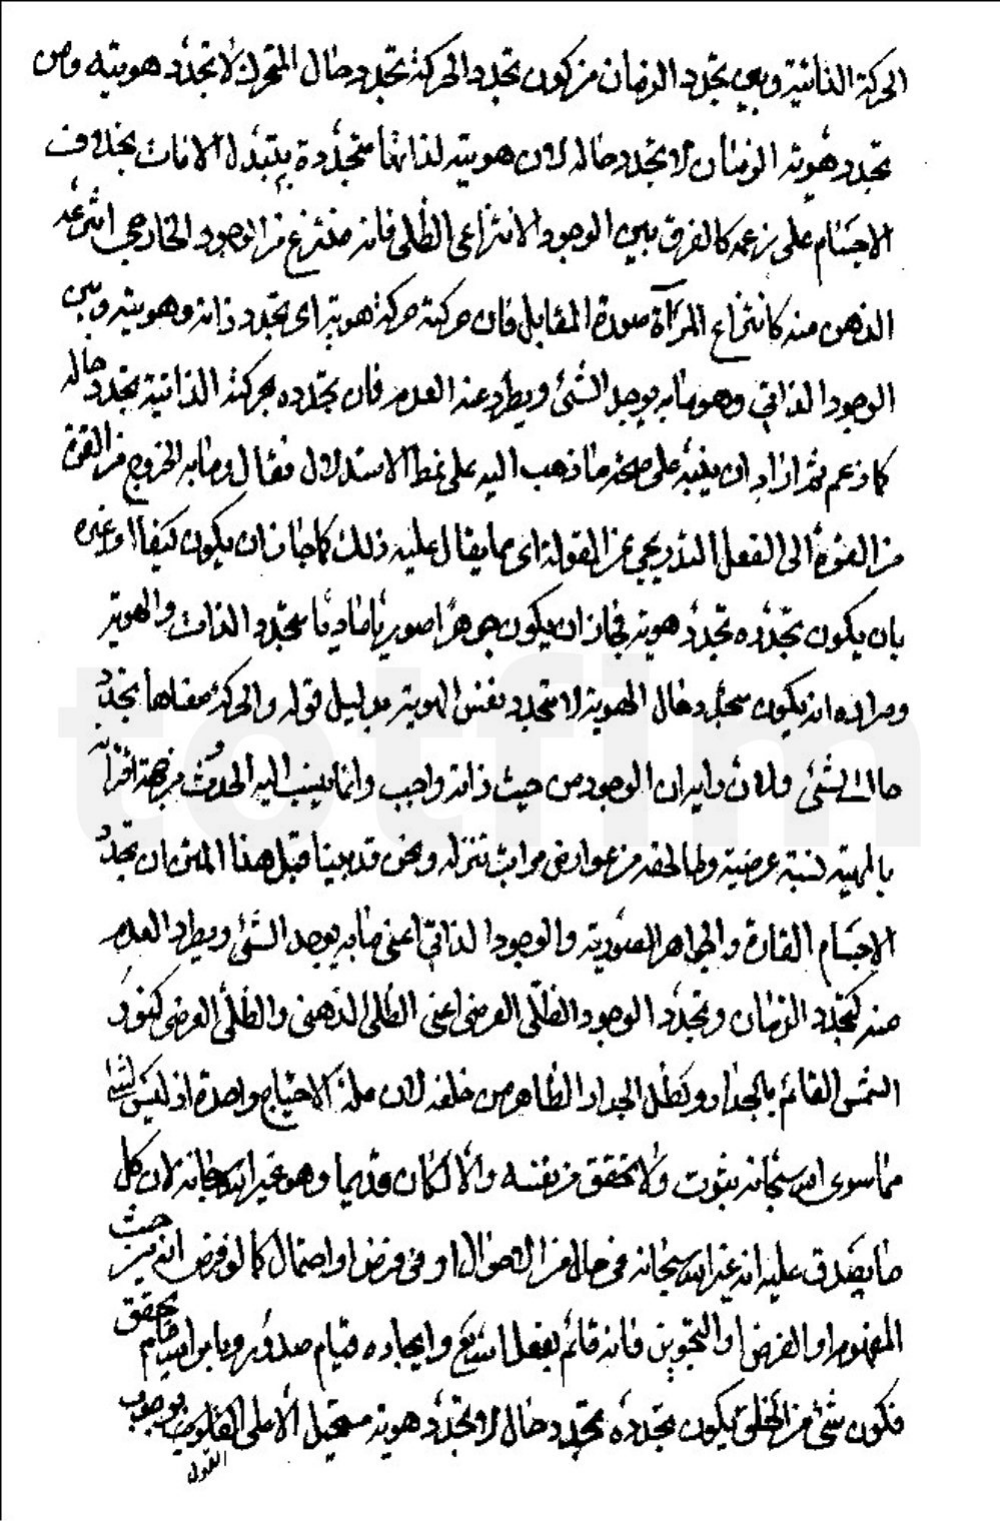 الحركة الذاتية وبين تجدد الزمان من كون تجدد الحركة تجدد حال المتحرك لا تجدد هويته ومن
تجدد هوية الزمان لا تجدد حاله لان هويته لذاتها متجددة بتبدل الانات بخلاف
الاجسام على زعمه كالفرق بين الوجود الانتزاعى الظلى فانه منتزع من الوجود الخارجى انتزعه
الذهن منه كانتزاع المرآة صورة المقابل فان حركته حركة هوية اى تجدد ذاته وهويته وبين
الوجود الذاتي وهو ما به يوجد الشئ ويطرد عنه العدم فان تجدده بحركته الذاتية تجدد حاله
كما زعم ثم اراد ان ينبه على صحة ما ذهب اليه على نمط الاستدلال فقال وما به الخروج من القوة
من القوة الى الفعل التدريجي من المقولة اى مما يقال عليه ذلك كما جاز ان يكون كيفا او غيره
بان يكون تجدده تجدد هوية فجاز ان يكون جوهرا صوريا ماديا متجدد الذات والهوية
ومراده انه يكون متجدد حال الهوية لا متجدد نفس الهوية بدليل قوله والحركة معناها تجدد
حال الشئ ولانه يرى ان الوجود من حيث ذاته واجب وانما ينسب اليه الحدوث من جهة اقترانه
بالمهية نسبة عرضية ولما لحقه من عوارض مراتب تنزله ونحن قد بينا قبل هذا المتن ان تجدد
الاجسام القارة والجواهر الصورية والوجود الذاتي اعنى ما به يوجد الشئ ويطرد العدم
عنه كتجدد الزمان وتجدد الوجود الظلى العرضى اعنى الظلى الذهنى والظلى العرضى كنور
الشمس القائم بالجدار وكظل الجدار الظاهر من خلفه لان علة الاحتياج واحدة اذ ليس لشئ
مما سوى الله سبحانه ثبوت ولا تحقق من نفسه والا لكان قديما وهو غير الله سبحانه لان كل
ما يصدق عليه انه غير الله سبحانه في حال من الاحوال او في فرض او احتمال كما لو فرض انه من حيث
المفهوم او الفرض او التجويز فانه قائم بفعل الله تع وايجاده قيام صدور وبامر الله قيام تحقق
فكون شئ من الخلق يكون تجدده تجدد حال لا تجدد هوية مستحيل الا على بوجوب
القول